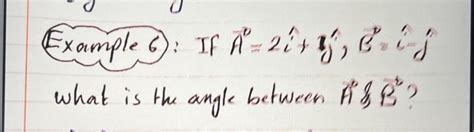 Example 6): If A⃗ = 2î + 1ĵ, B⃗ = î - ĵ
what is the angle between A⃗ & B⃗?